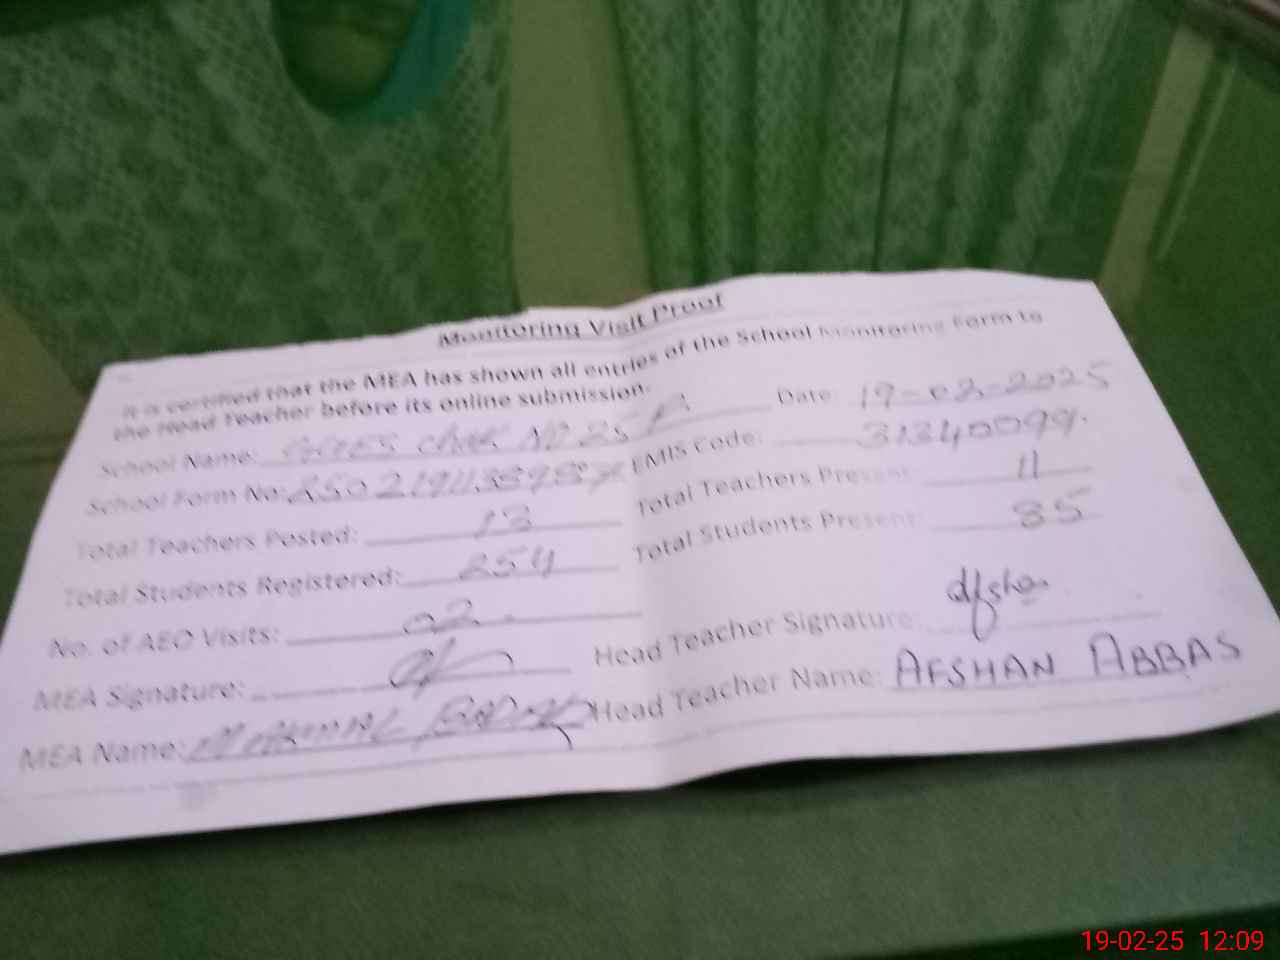 Monitoring Visit Proof
It is certified that the MEA has shown all entries of the School Monitoring Form to
the Head Teacher before its online submission.
School Name: Chak NO 25 P Date 19-02-2025
School Form No: EMIS Code: 31340099
Total Teachers Posted: 13 Total Teachers Present: 11
Total Students Registered: 254 Total Students Present: 85
No. of AEO Visits: 02
MEA Signature: Head Teacher Signature: Afshan
MEA Name: Head Teacher Name: AFSHAN ABBAS
19-02-25 12:09